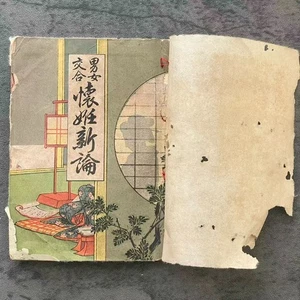 男女
交合
懷妊新論